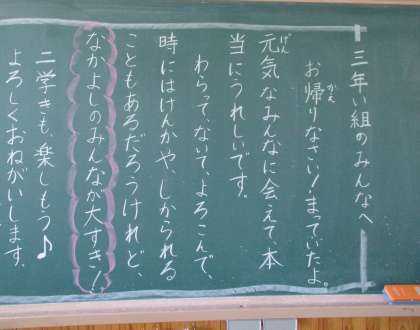 三年い組のみんなへ
お帰りなさい!まっていたよ。
元気なみんなに会えて本
当にうれしいです。
わらって、ないて、よろこんで、
時にはけんかや、しかられる
こともあるだろうけれど、
なかよしのみんなが大すき!
二学きも、楽しもう♪
よろしくおねがいします。